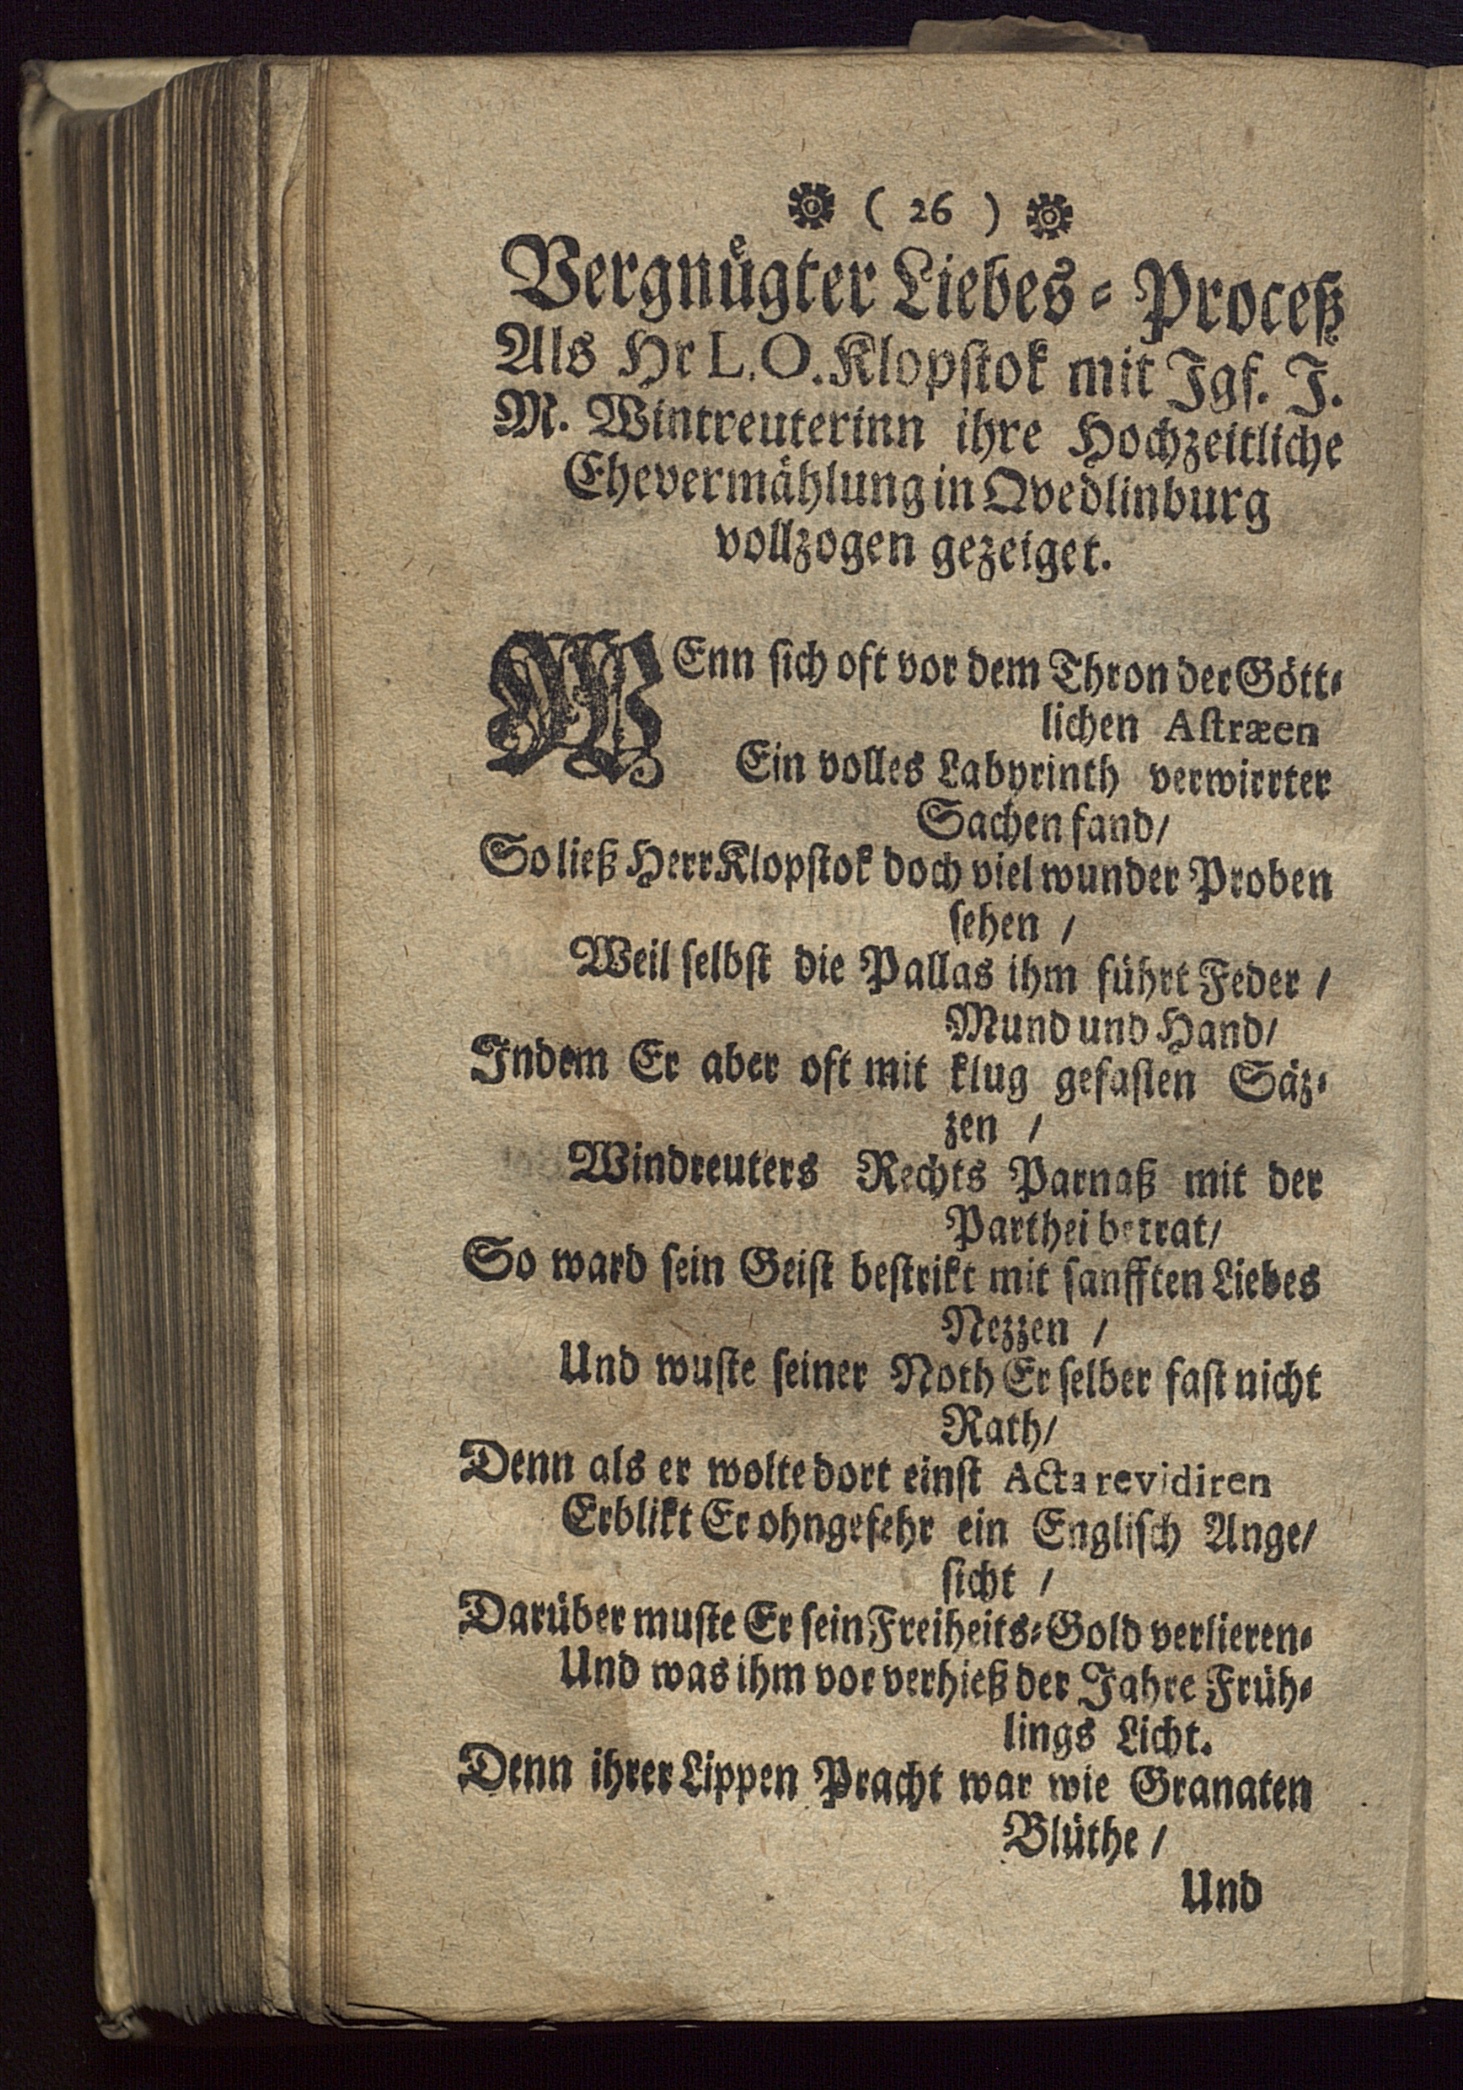 ( 26 )
Vergnuͤgter Liebes-Proceß
Als Hr L. O. Klopstok mit Jgf. J.
M. Wintreuterinn ihre Hochzeitliche
Ehevermählung in Qvedlinburg
vollzogen gezeiget.
WEnn sich oft vor dem Thron der Gött-
lichen Astræen
Ein volles Labyrinth verwirrter
Sachen fand/
So ließ Herr Klopstok doch viel wunder Proben
sehen /
Weil selbst die Pallas ihm führt Feder /
Mund und Hand/
Indem Er aber oft mit klug gefasten Säz-
zen /
Windreuters Rechts Parnaß mit der
Parthei betrat/
So ward sein Geist bestrikt mit sanfften Liebes
Nezzen /
Und wuste seiner Noth Er selber fast nicht
Rath/
Denn als er wolte dort einst Acta revidiren
Erblikt Er ohngefehr ein Englisch Ange/
sicht /
Darüber muste Er sein Freiheits-Gold verlieren-
Und was ihm vor verhieß der Jahre Früh-
lings Licht.
Denn ihrer Lippen Pracht war wie Granaten
Blüthe /
Und